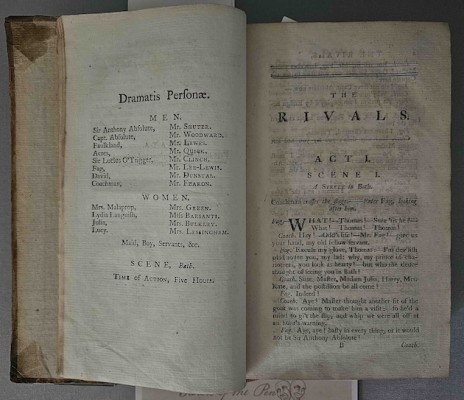 Dramatis Personæ.
MEN.
Sir Anthony Absolute, Mr. Shuter.
Capt. Absolute, Mr. Woodward.
Faulkland, Mr. Lewis.
Acres, Mr. Quick.
Sir Lucius O'Trigger, Mr.
Fag, Mr. Lee-Lewis.
David, Mr. Dunstal.
Coachman, Mr. Fearon.
WOMEN.
Mrs. Malaprop, Mrs. Green.
Lydia Languish, Miss Barsanti.
Julia, Mrs. Bulkley.
Lucy, Mrs. Lessingham.
Maid, Boy, Servants, &c.
SCENE, Bath.
Time of Action, Five Hours.
THE RIVALS.
THE
RIVALS.
ACT I.
SCENE I.
A Street in Bath.
Coachman crosses the stage.—Enter Fag, looking
after him.
WHAT!—Thomas!—Sure 'tis he
What!—Thomas! Thomas!
Coach. Hey!—Odd's life!—Mr. Fag! give us
your hand, my old fellow servant.
Fag. Excuse my glove, Thomas: I'm dev'lish
glad to see you, my lad: why, my prince of Cha-
rioteers, you look as hearty!—but who the deuce
thought of seeing you in Bath!
Coach. Sure, Master, Madam Julia, Harry, Mrs.
Kate, and the postillion be all come!
Fag. Indeed!
Coach. Aye! Master thought another fit of the
gout was coming to make him a visit: so he'd a
mind to gi't the slip, and whip we were all off at
an hour's warning.
Fag. Aye, aye! hasty in every thing, or it would
not be Sir Anthony Absolute!
B Coach.
of the Pen